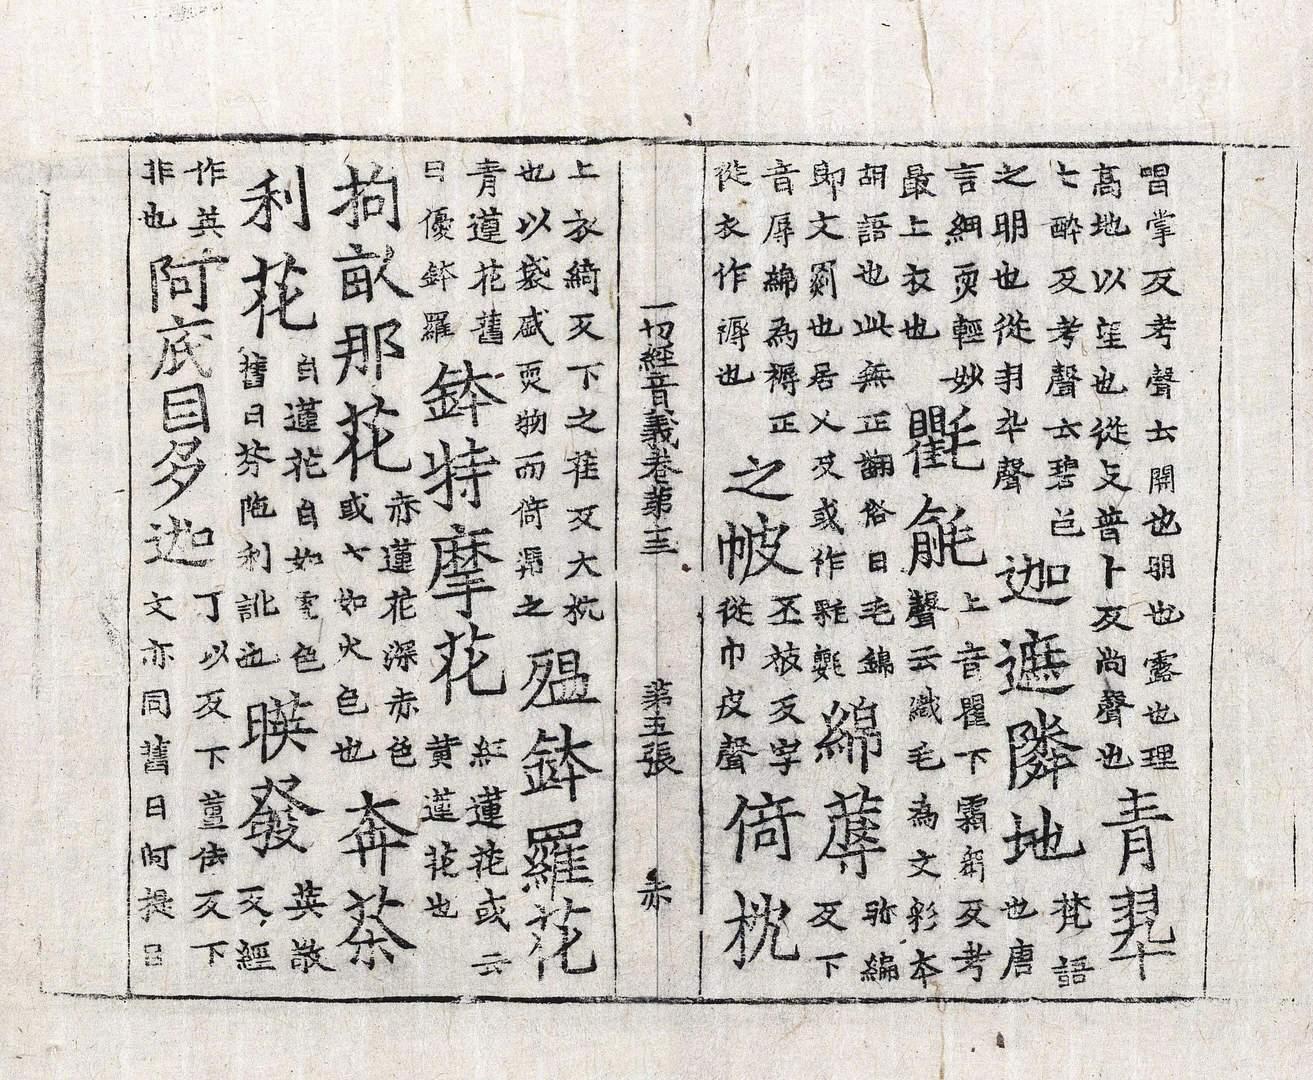 唱掌反考聲云開也明也露也理
高地以望也從攴普卜反尚聲也
青翠
七醉反考聲云碧色
之明也從羽卒聲
迦遮隣地
梵語
也唐
言細耎輕妙
最上衣也
氍毹
上音瞿下霜芻反考
聲云織毛為文彩本
胡語也此無正翻俗曰毛錦
即文罽也居乂反或作氀毲
綿蓐
弥編
反下
音辱綿為褥正
從衣作褥也
之帔
丕被反字
從巾皮聲
倚枕
一切經音義卷第十三
第五張
赤
上衣綺反下之荏反大枕
也以袋盛耎物而倚凭之
殟鉢羅花
青蓮花舊
曰優鉢羅
鉢特摩花
紅蓮花或云
黄蓮花也
拘畝那花
赤蓮花深赤色
或云如火色也
奔荼
利花
白蓮花白如雪色
舊曰芬陁利訛也
暎發
英敬
反經
作英
非也
阿底目多迦
丁以反下董佉反下
文亦同舊曰阿提目